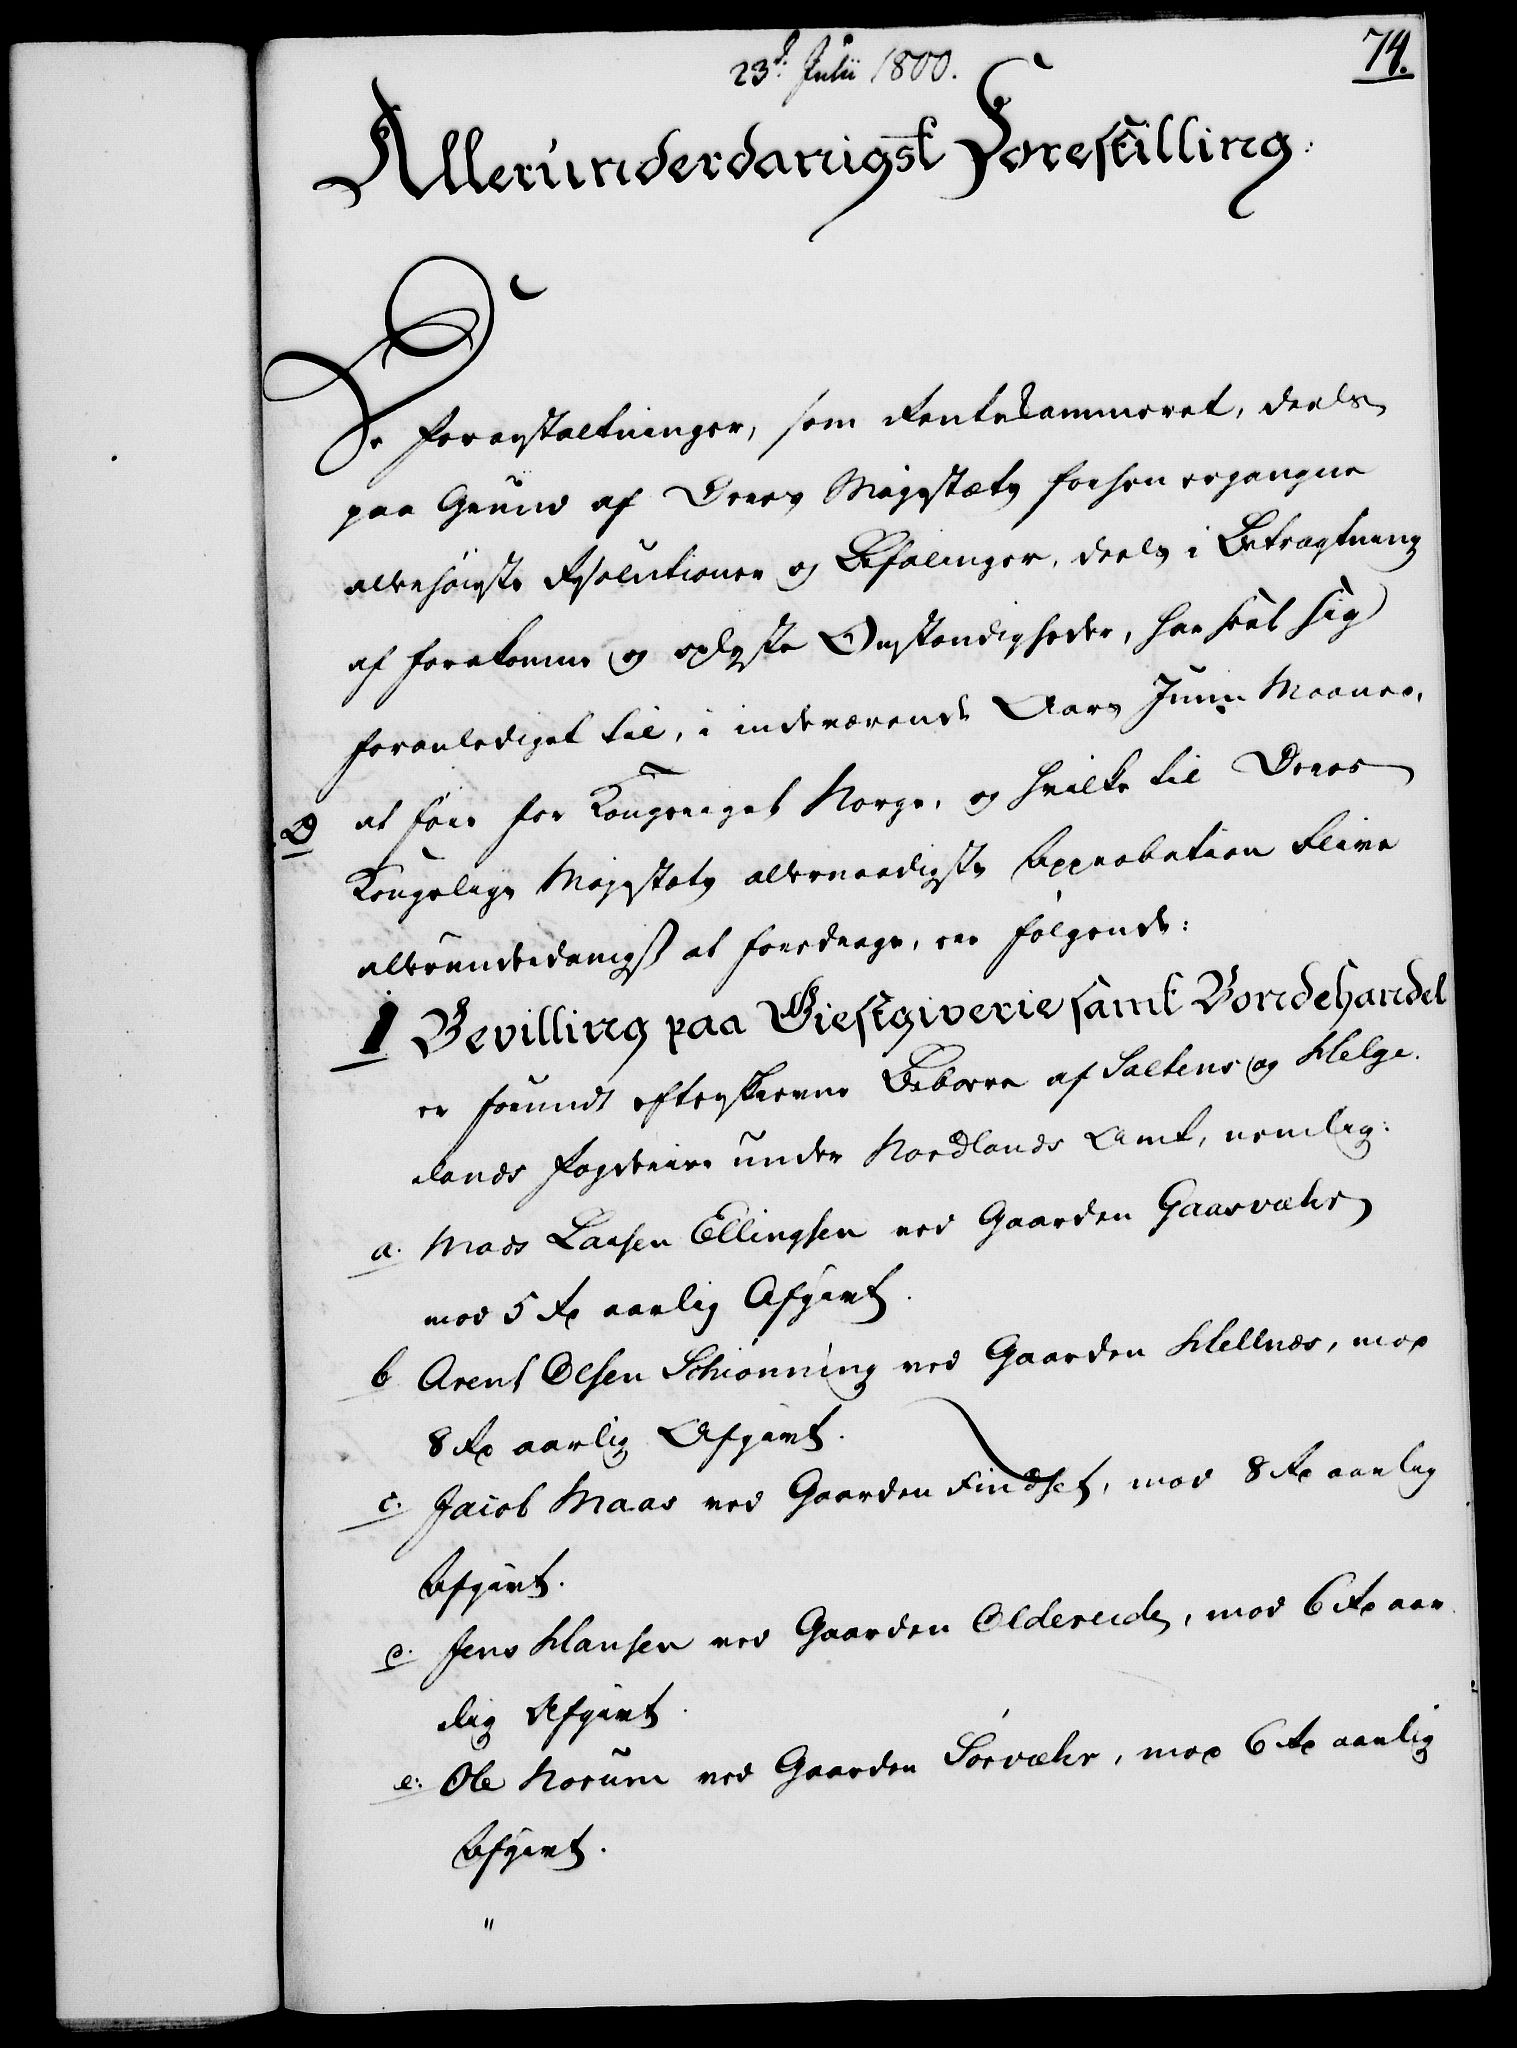 74.
23d. Julii 1800.
Allerunderdanigst Forestilling:
De Foranstaltninger, som Rentekammeret, deels
paa Grund af Deres Majestæts forhen ergangne
allerhöieste Resolutioner og Befalinger, deels i Betragtning
af forekomne og oplyste Omstændigheder, har seet sig
foranlediget til, i indeværende Aars Junii Maaned,
at föie for Kongeriget Norge, og hvilke til Deres
Kongelige Majestæts allernaadigste Approbation blive
allerunderdanigst at foredrage, ere fölgende:
1 Bevilling paa Giestgiverie samt Bondehandel
er forundt efterskrevne Beboere af Saltens og Helge-
lands Fogderier under Nordlands Amt, nemlig:
a. Mads Larsen Ellingsen ved Gaarden Gaasvæhr
mod 5 Rd aarlig Afgivt.
b Arent Olsen Schiönning ved Gaarden Hellnes, mod
8 Rd aarlig Afgivt.
c. Jacob Maas ved Gaarden Findset, mod 8 Rd aarlig
Afgivt.
d. Jens Hansen ved Gaarden Oldereide, mod 6 Rd aar-
lig Afgivt.
e. Ole Norum ved Gaarden Sörvæhr, mod 6 Rd aarlig
Afgivt.
"